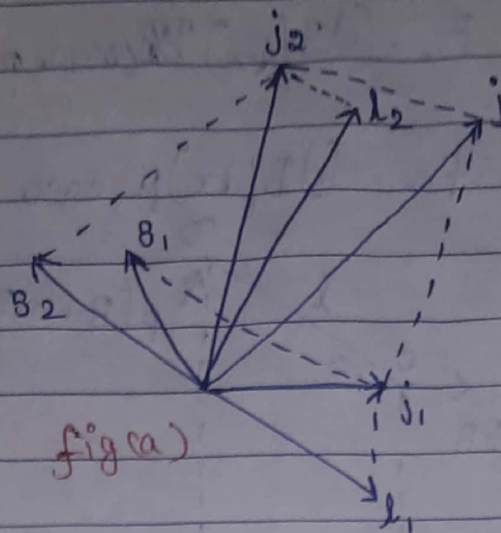 j2
l2
j
s1
s2
j1
fig(a)
l1